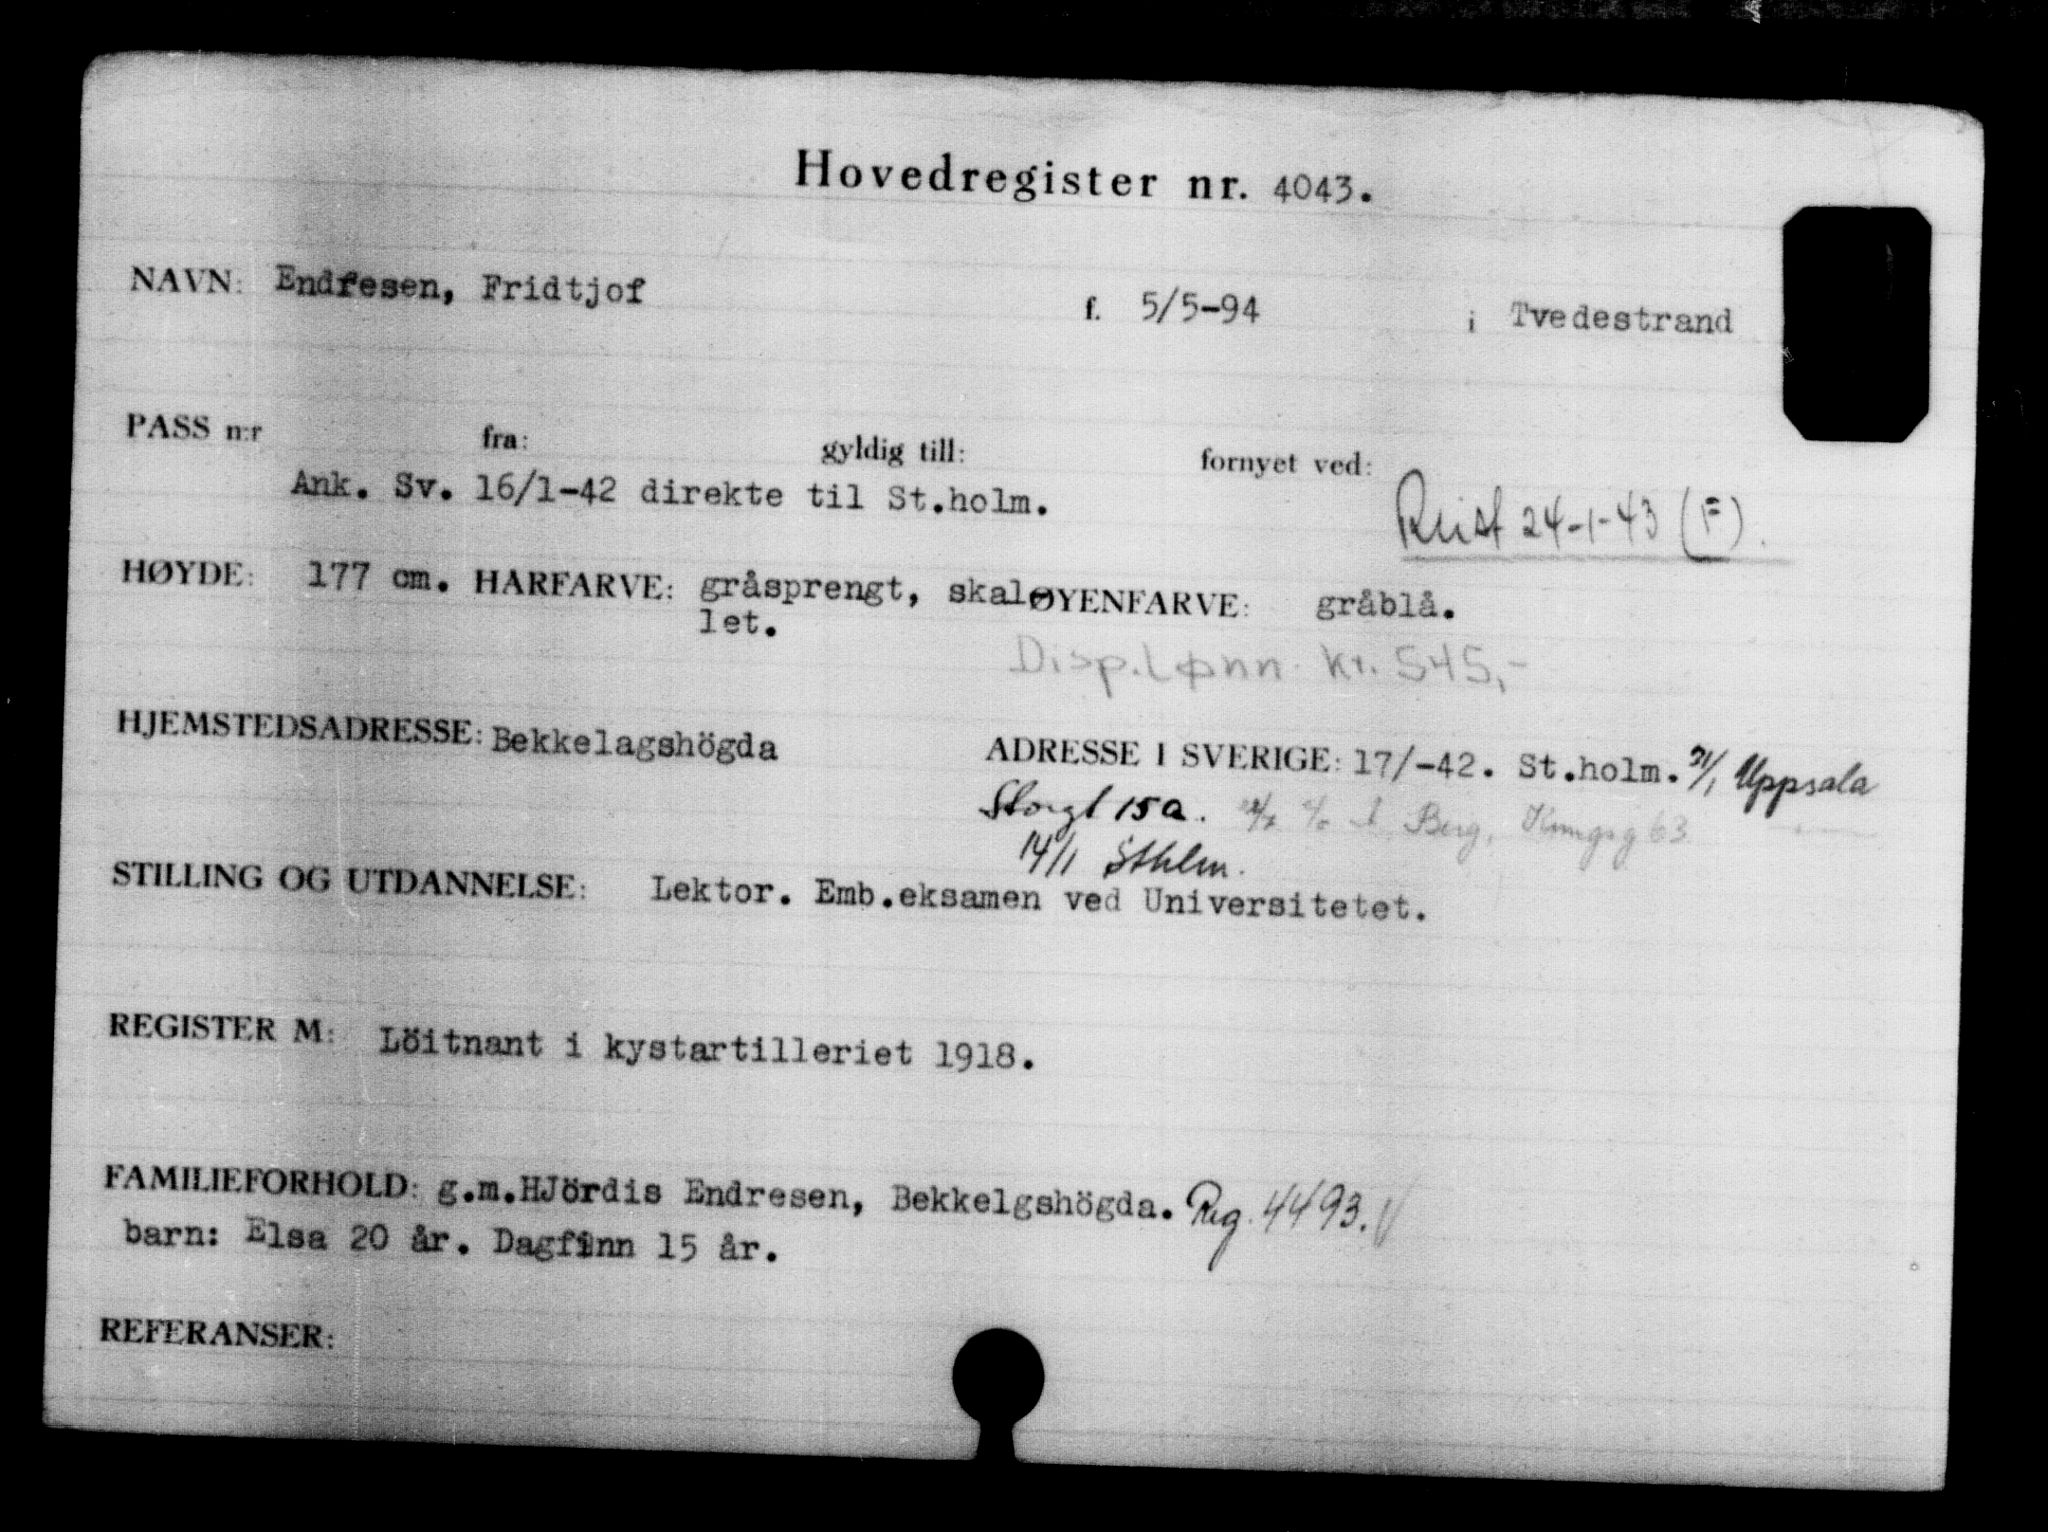 Hovedregister nr. 4043.
NAVN: Endresen, Fridtjof f. 5/5-94 i Tvedestrand
PASS n:r fra: gyldig till: fornyet ved:
Ank. Sv. 16/1-42 direkte til St.holm.
Reist 24-1-43 (F).
HØYDE: 177 cm. HARFARVE: gråsprengt, skal- ØYENFARVE: gråblå.
let.
Disp. Lønn kr. 545,-
HJEMSTEDSADRESSE: Bekkelagshögda ADRESSE I SVERIGE: 17/-42. St.holm. 21/1 Uppsala
Storgt 15a. c/o Berg, Kungsg 63
14/1 Sthlm.
STILLING OG UTDANNELSE: Lektor. Emb.eksamen ved Universitetet.
REGISTER M: Löitnant i kystartilleriet 1918.
FAMILIEFORHOLD: g.m.HJördis Endresen, Bekkelgshögda. Reg. 4493.
barn: Elsa 20 år. Dagfinn 15 år.
REFERANSER: